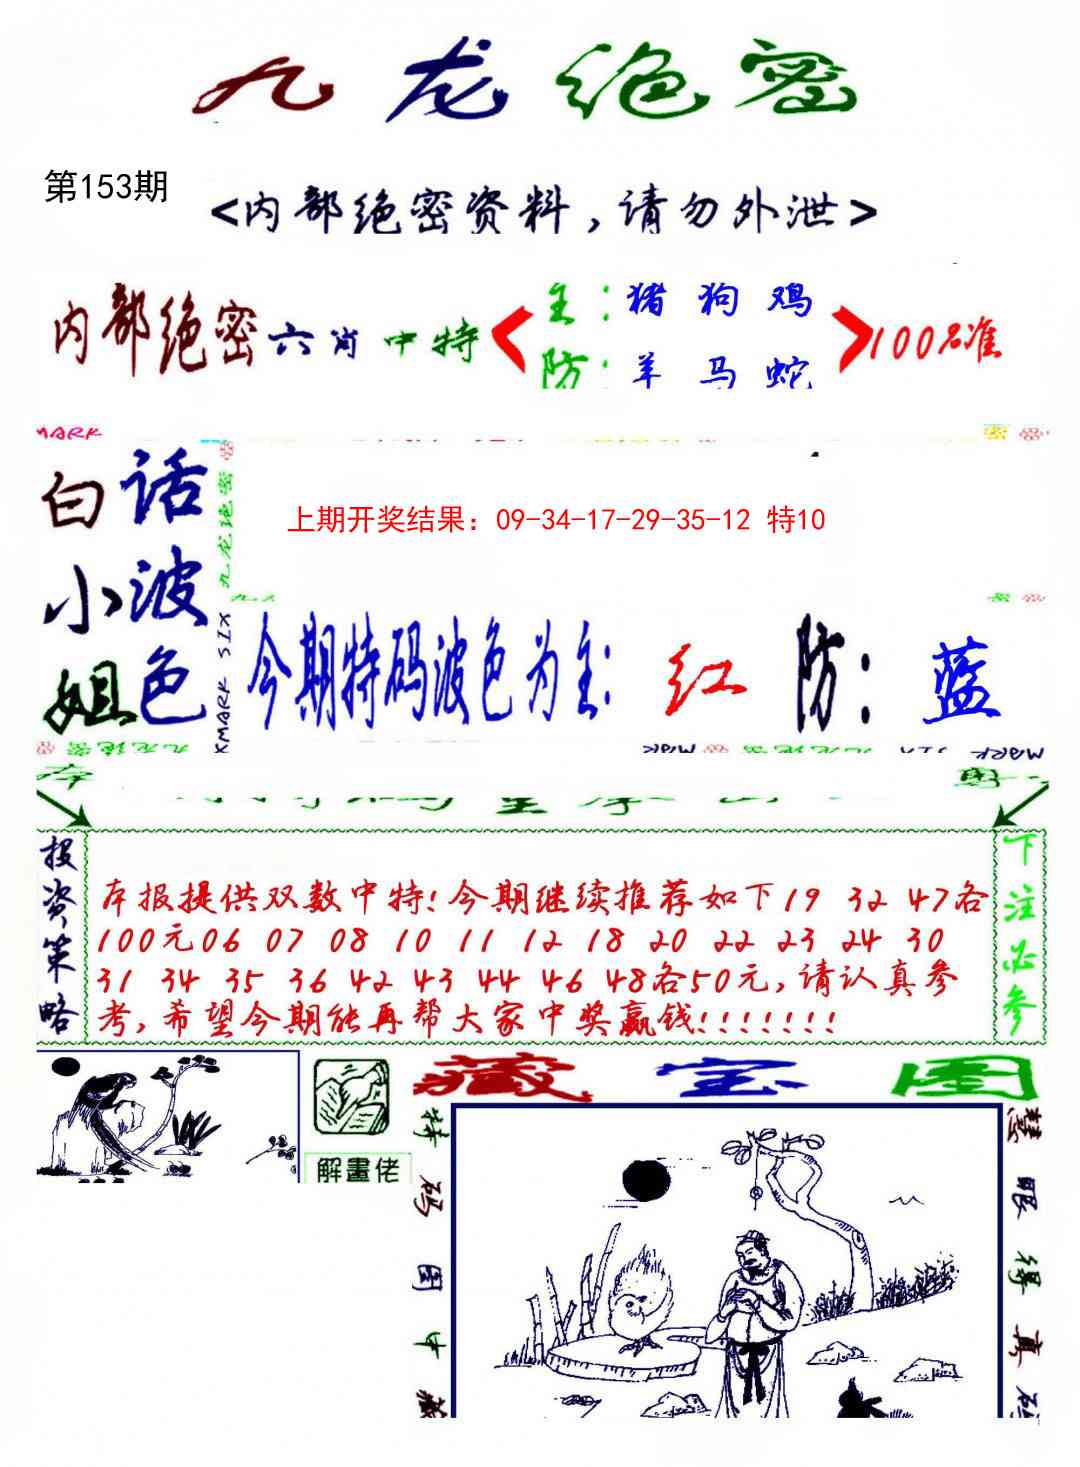 九龙绝密
第153期
<内部绝密资料,请勿外泄>
内部绝密六肖中特
主:猪 狗 鸡
防:羊 马 蛇
100%准
MARK
白话
小波
姐色
九龙绝密
上期开奖结果：09-34-17-29-35-12 特10
今期特码波色为主:红 防:蓝
投资策略
本报提供双数中特!今期继续推荐如下19 32 47各
100元06 07 08 10 11 12 18 20 22 23 24 30
31 34 35 36 42 43 44 46 48各50元,请认真参
考,希望今期能再帮大家中奖赢钱!!!!!!!
下注必参
解畫佬
藏宝图
特码图中藏
慧眼得真码